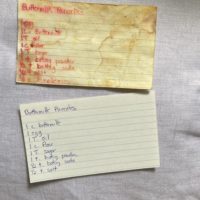 Buttermilk Pancakes
1 egg
1 c. buttermilk
1 T. oil
1 c. flour
1 T. sugar
1 t. baking powder
½ t. baking soda
½ t.
Buttermilk Pancakes
1 c. buttermilk
1 egg
1 T. oil
1 c. flour
1 T. sugar
1 t. baking powder
½ t. baking soda
½ t. salt